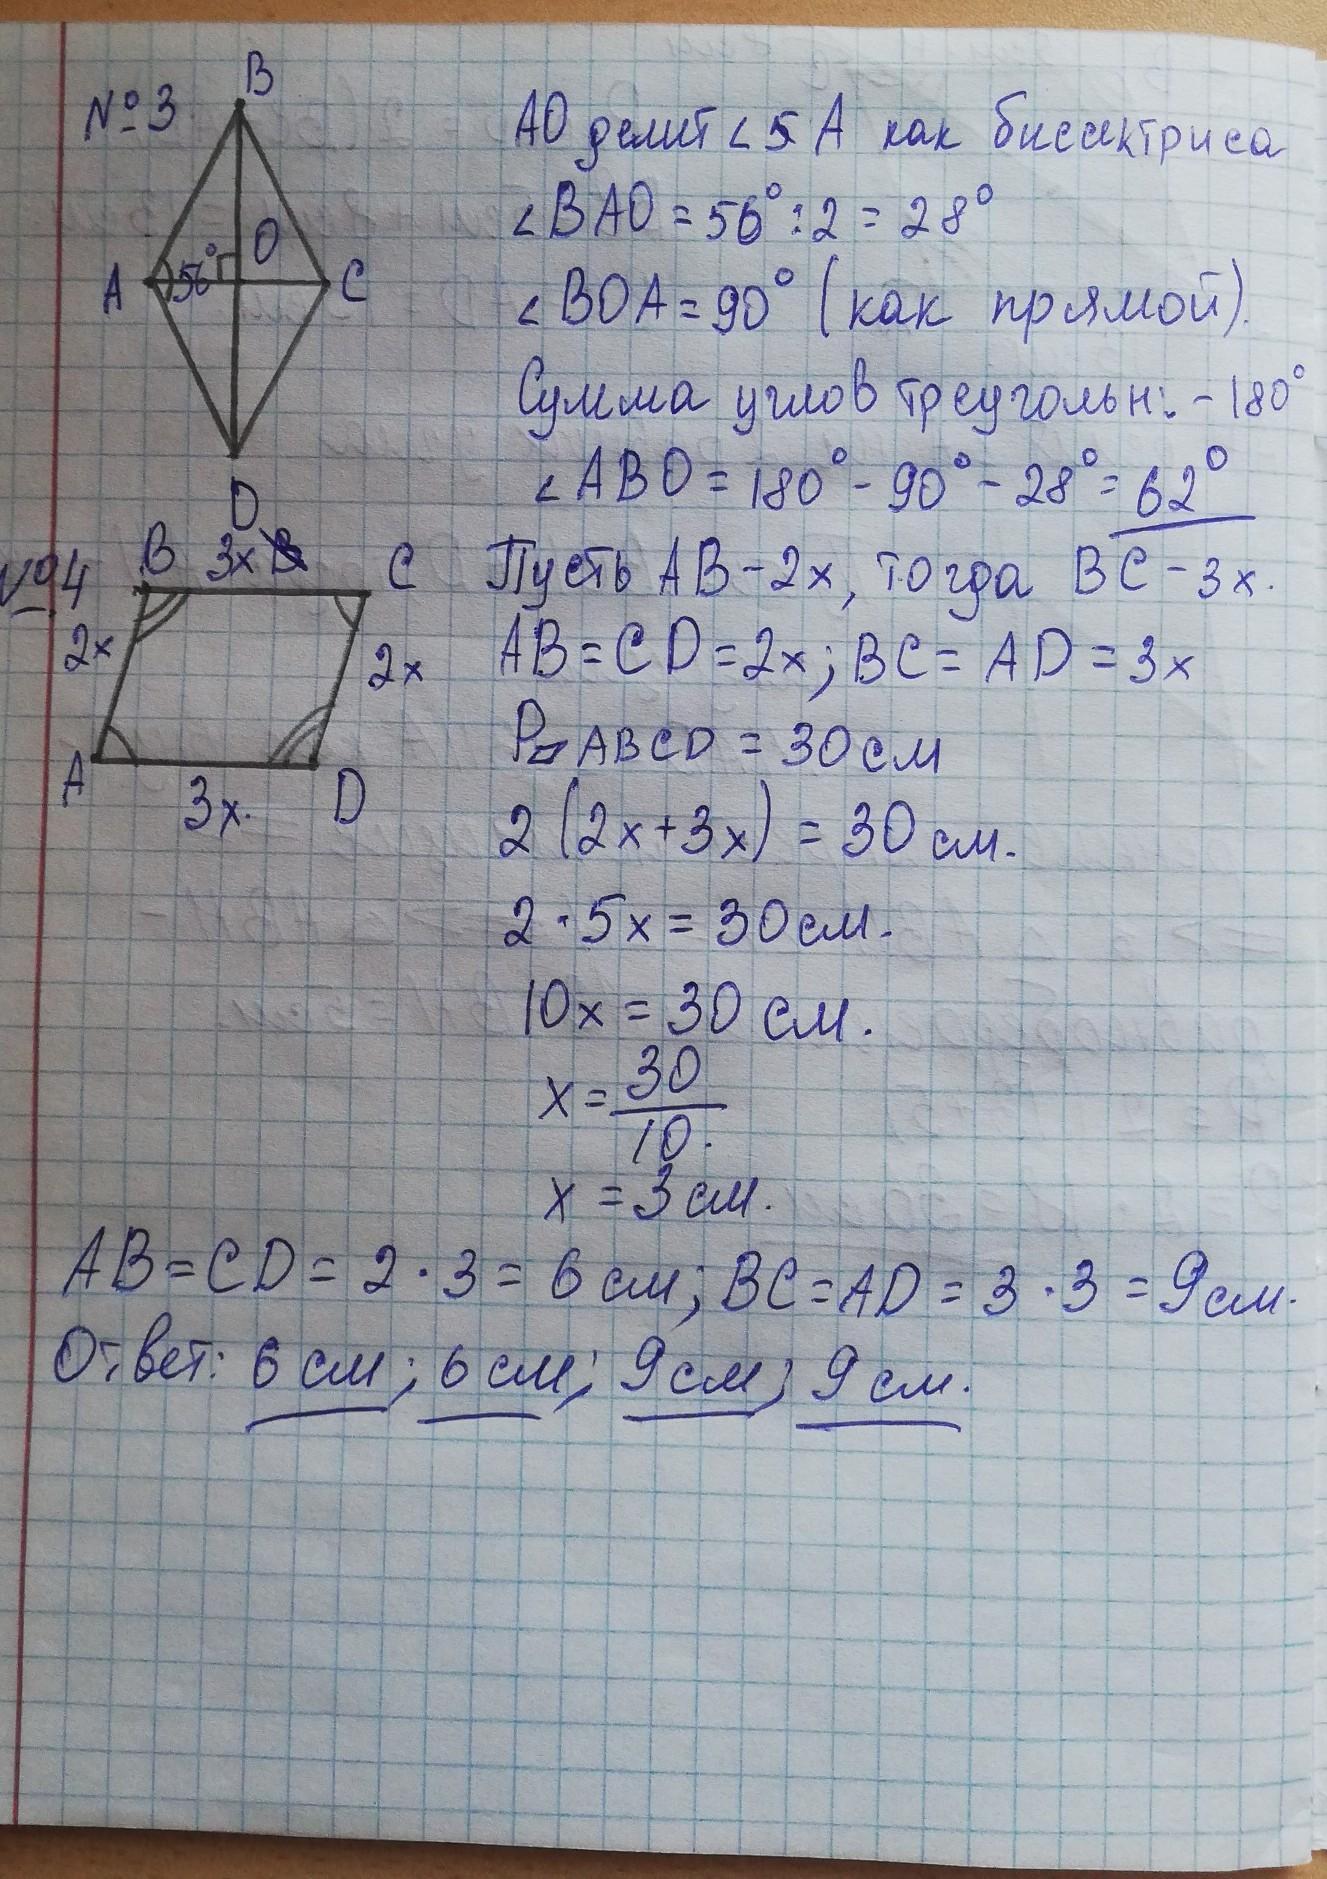 №3
B
O
A
56°
C
D
AO делит < A как биссектриса
<BAO = 56° : 2 = 28°
<BOA = 90° (как прямой).
Сумма углов треугольн. - 180°
<ABO = 180° - 90° - 28° = 62°
№4
B 3x C
2x
2x
A
3x.
D
Пусть AB - 2x, тогда BC - 3x.
AB = CD = 2x; BC = AD = 3x
P▱ABCD = 30см
2(2x+3x) = 30 см.
2 · 5x = 30 см.
10x = 30 см.
x = 30/10.
x = 3 см.
AB = CD = 2 · 3 = 6 см; BC = AD = 3 · 3 = 9 см.
Ответ: 6 см; 6 см; 9 см; 9 см.